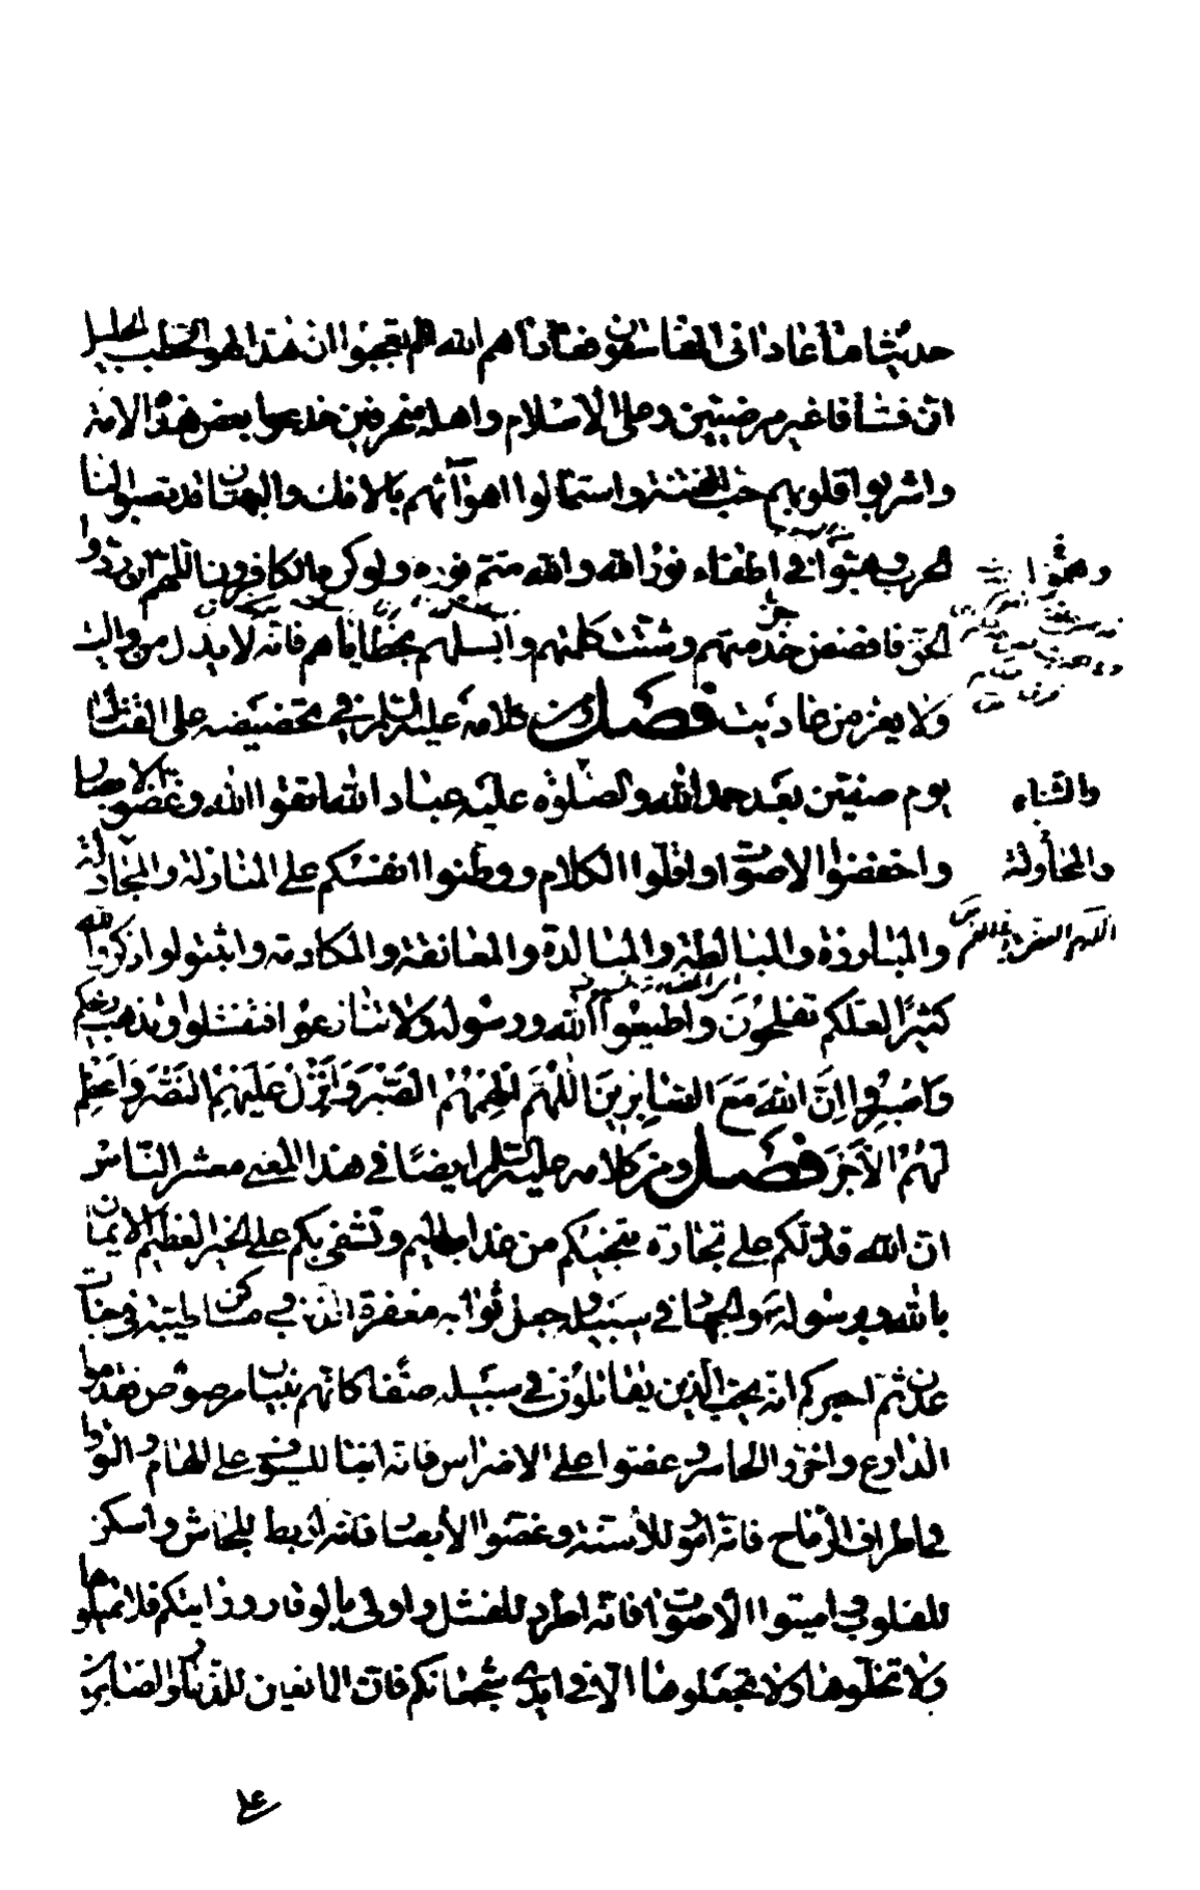 حديثا ما عادانى الفاسقون فعاداهم الله الم تعجبوا ان هذا لهو الخطب الجليل
ان فساقا غير مرضيين وعلى الاسلام واهله منحرفين خدعوا بعض هذه الامة
واشربوا قلوبهم حب الفتنة واستمالوا اهوآئهم بالافك والبهتان قد نصبوا لنا
الحرب وهبوا فى اطفاء نور الله والله متم نوره ولو كره الكافرون اللهم ان ردوا
الحق فافضض خدمتهم وشتت كلمتهم وابسلهم بخطاياهم فانه لا يذل من واليت
ولا يعز من عاديت فصل ومن كلامه عليه السلم فى تحضيضه على القتال
يوم صفين بعد حمد الله والصلوة عليه عباد الله اتقوا الله وغضوا الابصار
واخفضوا الاصوات واقلوا الكلام ووطنوا انفسكم على المنازلة والمجادلة
والمبارزة والمبالطة والمبالدة والمعانقة والمكادمة واثبتوا واذكروا الله
كثيرًا لعلكم تفلحون واطيعوا الله ورسوله ولا تنازعوا فتفشلوا وتذهب ريحكم
وَاصْبِرُوا اِنَّ اللهَ مَعَ الصَّابِرِينَ اَللّهُمَّ اَلْهِمْهُمُ الصَّبْرَ وَاَنْزِلْ عَلَيْهِمُ النَّصْرَ وَاَعْظِمْ
لَهُمُ الاَجْرَ فصل ومن كلامه عليه السلم ايضًا فى هذا المعنى معشر الناس
ان الله قد دلكم على تجارة تنجيكم من عذاب اليم وتشفى بكم على الخير العظيم الايمان
بالله وبرسوله والجهاد فى سبيله وجعل ثوابه مغفرة الذنب ومساكن طيبة فى جنات
عدن ثم اخبركم انه يحب الذين يقاتلون فى سبيله صفا كانهم بنيان مرصوص فقدموا
الدارع واخروا الحاسر وعضوا على الاضراس فانه انبا للسيوف على الهام والتووا
فى اطراف الرماح فانه امور للاسنة وغضوا الابصار فانه اربط للجاش واسكن
للقلوب واميتوا الاصوات فانه اطرد للفشل واولى بالوقار ورايتكم فلا تميلوها
ولا تخلوها ولا تجعلوها الا فى ايدى شجعانكم فان المانعين للذمار والصابرين
وهمّوا
والثناء
والمجاولة
على